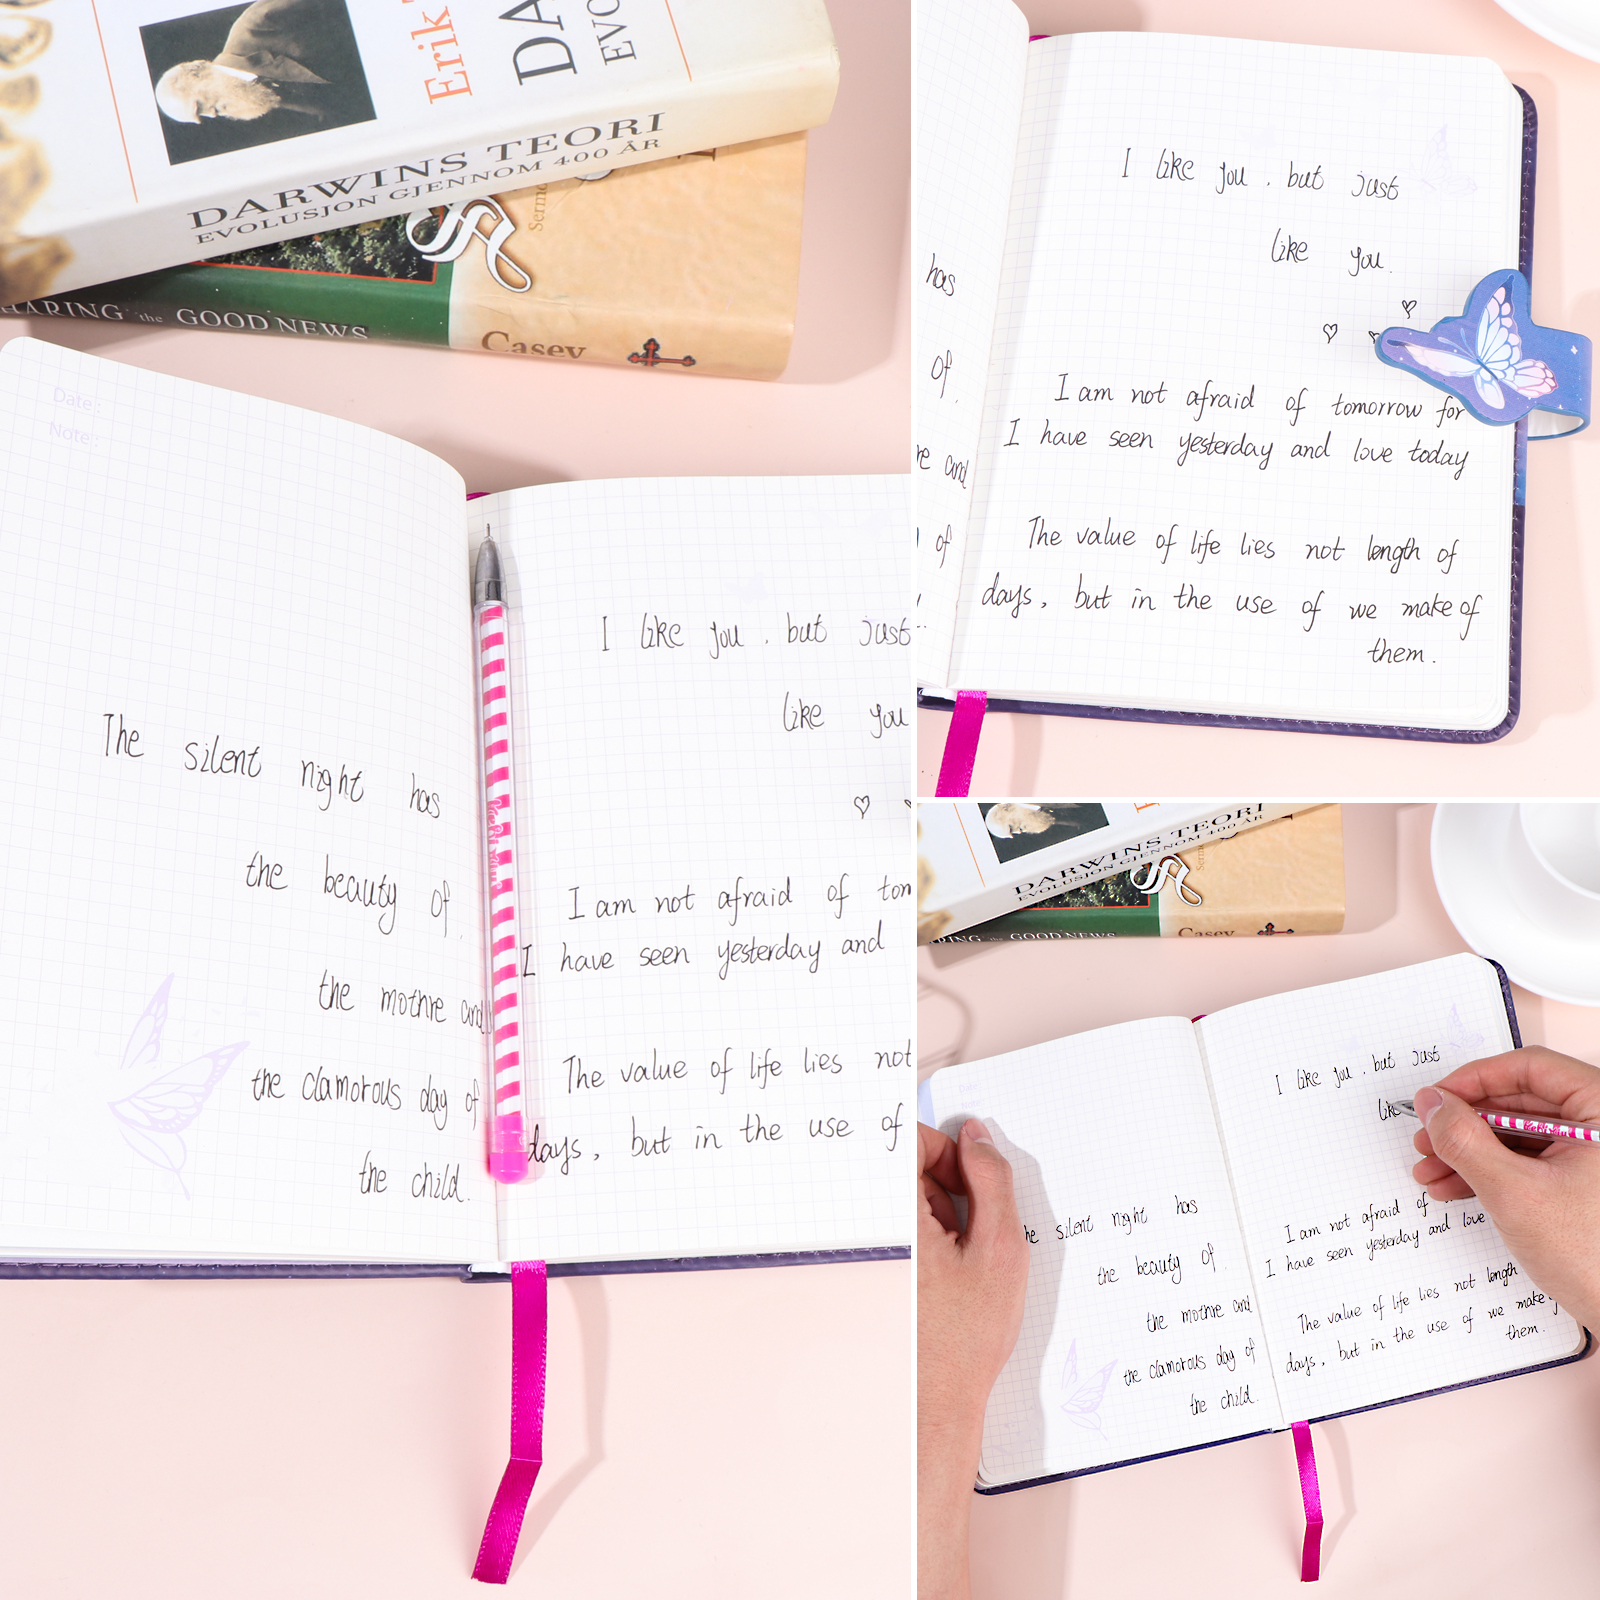 Erik
DA
EVO
DARWINS TEORI
EVOLUSJON GJENNOM 400 ÅR
HARING the GOOD NEWS
Casey
Date :
Note :
The silent night has
the beauty of.
the mothre and
the clamorous day of
the child.
I like you . but just
like you
♡
I am not afraid of tom
I have seen yesterday and
The value of life lies not
days, but in the use of
has
of.
re and
of
I like you . but just
like you.
♡
♡
I am not afraid of tomorrow for
I have seen yesterday and love today
The value of life lies not length of
days, but in the use of we make of
them.
DARWINS TEORI
EVOLUSJON GJENNOM 400 ÅR
RING the GOOD NEWS
Casey
he silent night has
the beauty of.
the mothre and
the clamorous day of
the child.
I like you . but just
like
I am not afraid of
I have seen yesterday and love
The value of life lies not length
days, but in the use of we make
them.